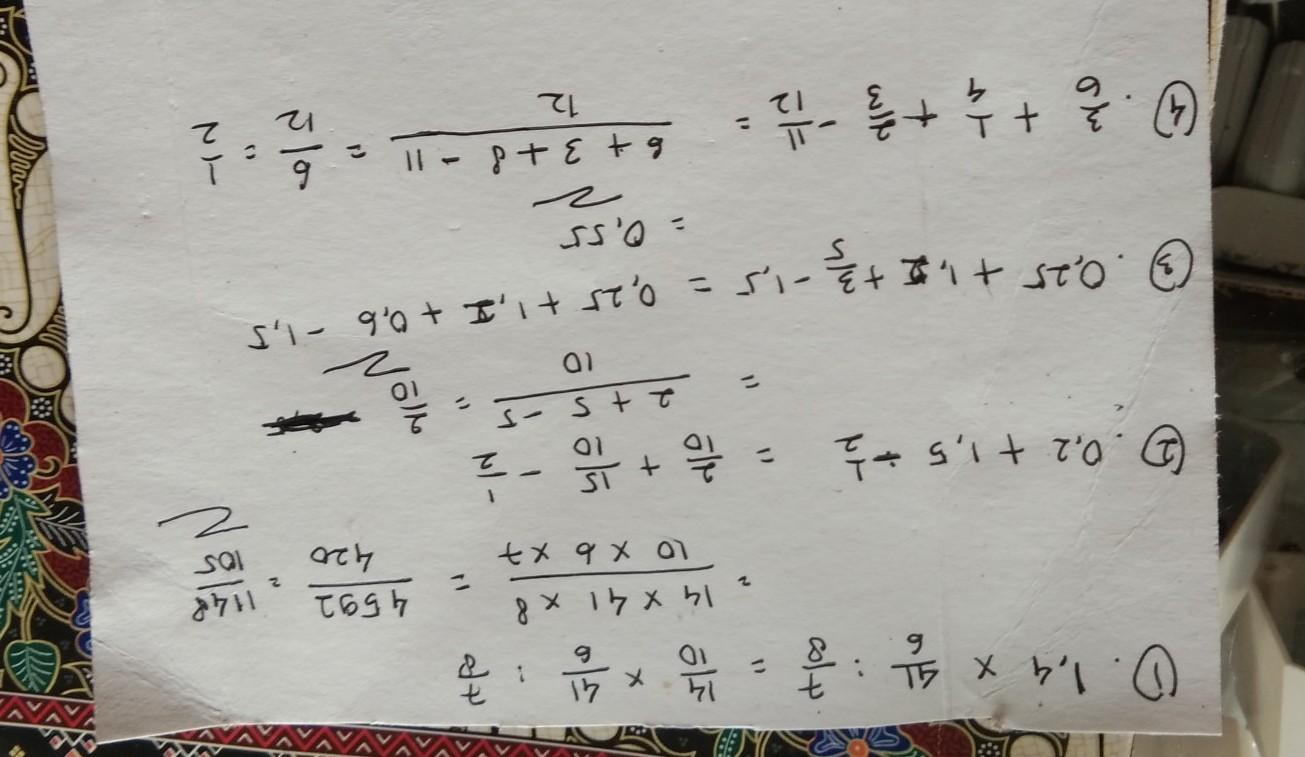 ① . 1,4 × 41/6 : 7/8 = 14/10 × 41/6 : 7/8
= (14 × 41 × 8)/(10 × 6 × 7) = 4592/420 = 1148/105
② . 0,2 + 1,5 - 1/2 = 2/10 + 15/10 - 1/2
= (2 + 5 - 5)/10 = 2/10
③ . 0,25 + 1,2 + 3/5 - 1,5 = 0,25 + 1,2 + 0,6 - 1,5
= 0,55
④ . 3/6 + 1/4 + 2/3 - 11/12 = (6 + 3 + 8 - 11)/12 = 6/12 = 1/2